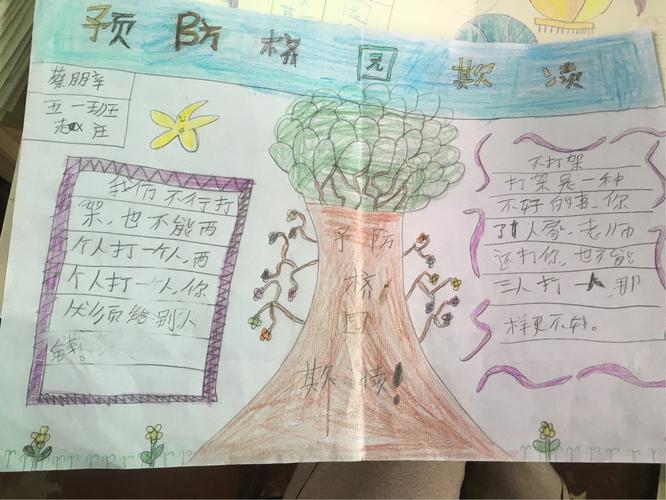 预防校园欺凌
蔡朋辛
五一班
我们不行打
架，也不能两
个人打一个人，两
个人打一个人，你
必须给别人
钱。
预防
校
园
欺凌！
不打架
打架是一种
不好的事，你
打人家，老师
还打你，也不能
三人打一人，那
样更不好。